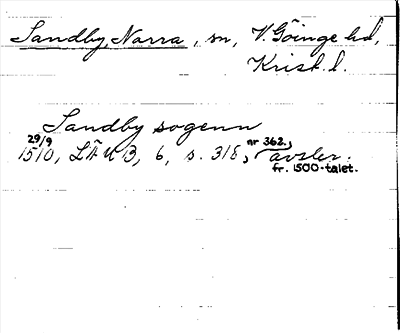 Sandby, Norra, sn, V. Göinge hd,
Krist. l.
Sandby sogenn
29/9
1510, LÄU B, 6, s. 318, nr 362., avskr.
fr. 1500-talet.